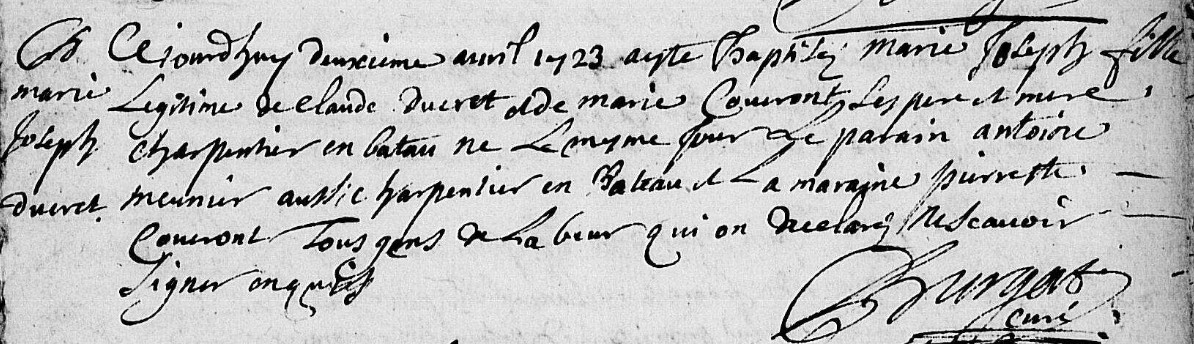 B. Cejourdhuy deuxieme avril 1723 aeste Baptisé marie Joseph fille
marie Legitime de Claude ducret et de marie Couuront ses pere et mere
Joseph charpentier en batau ne Le mesme jour Le parain antoine
ducret meunier aussi charpentier en Bateau et La maraine pierrette
Couuront Tous gens de Labeur qui on declaré Nescauoir
signer enquis
curé